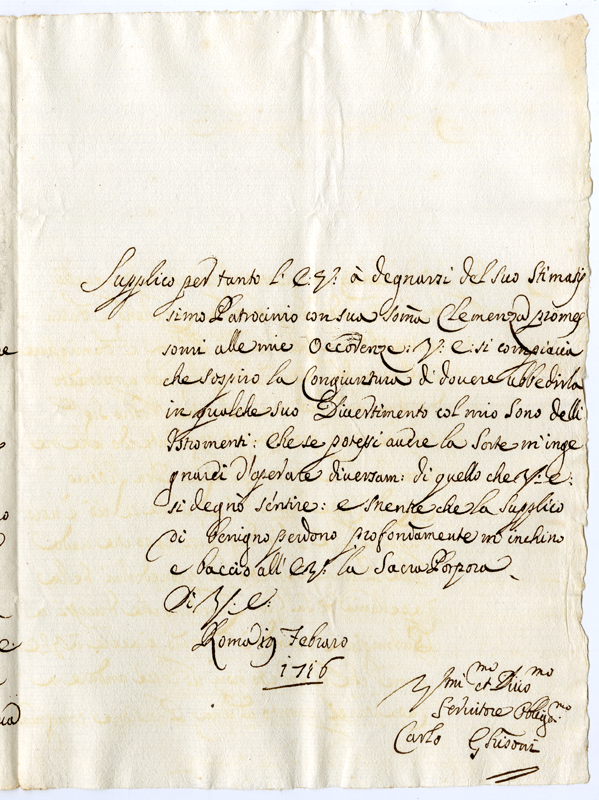 Supplico per tanto l' E: V: à degnarsi del suo Stimatis
simo Patrocinio con sua somã Clemenza promes
somi alle mie Occorenze: V: E: si compiaccia
che sospiro la Congiuntura di douere ubbedirla
in qualche suo Divertimento col mio sono delli
Istromenti: che se potessi auere la sorte m'inge
gnarei d'operare diuersam: di quello che V: E:
si degnò sentire: e mentre che la Supplico
di benigno perdono profondamente m'inchino
e baccio all' E: V: la Sacra Porpora
Di V: E:
Roma 19 Febraro
1716
Vmi mo et Diuo mo
Seruitore Obligo: mo
Carlo Grisoni